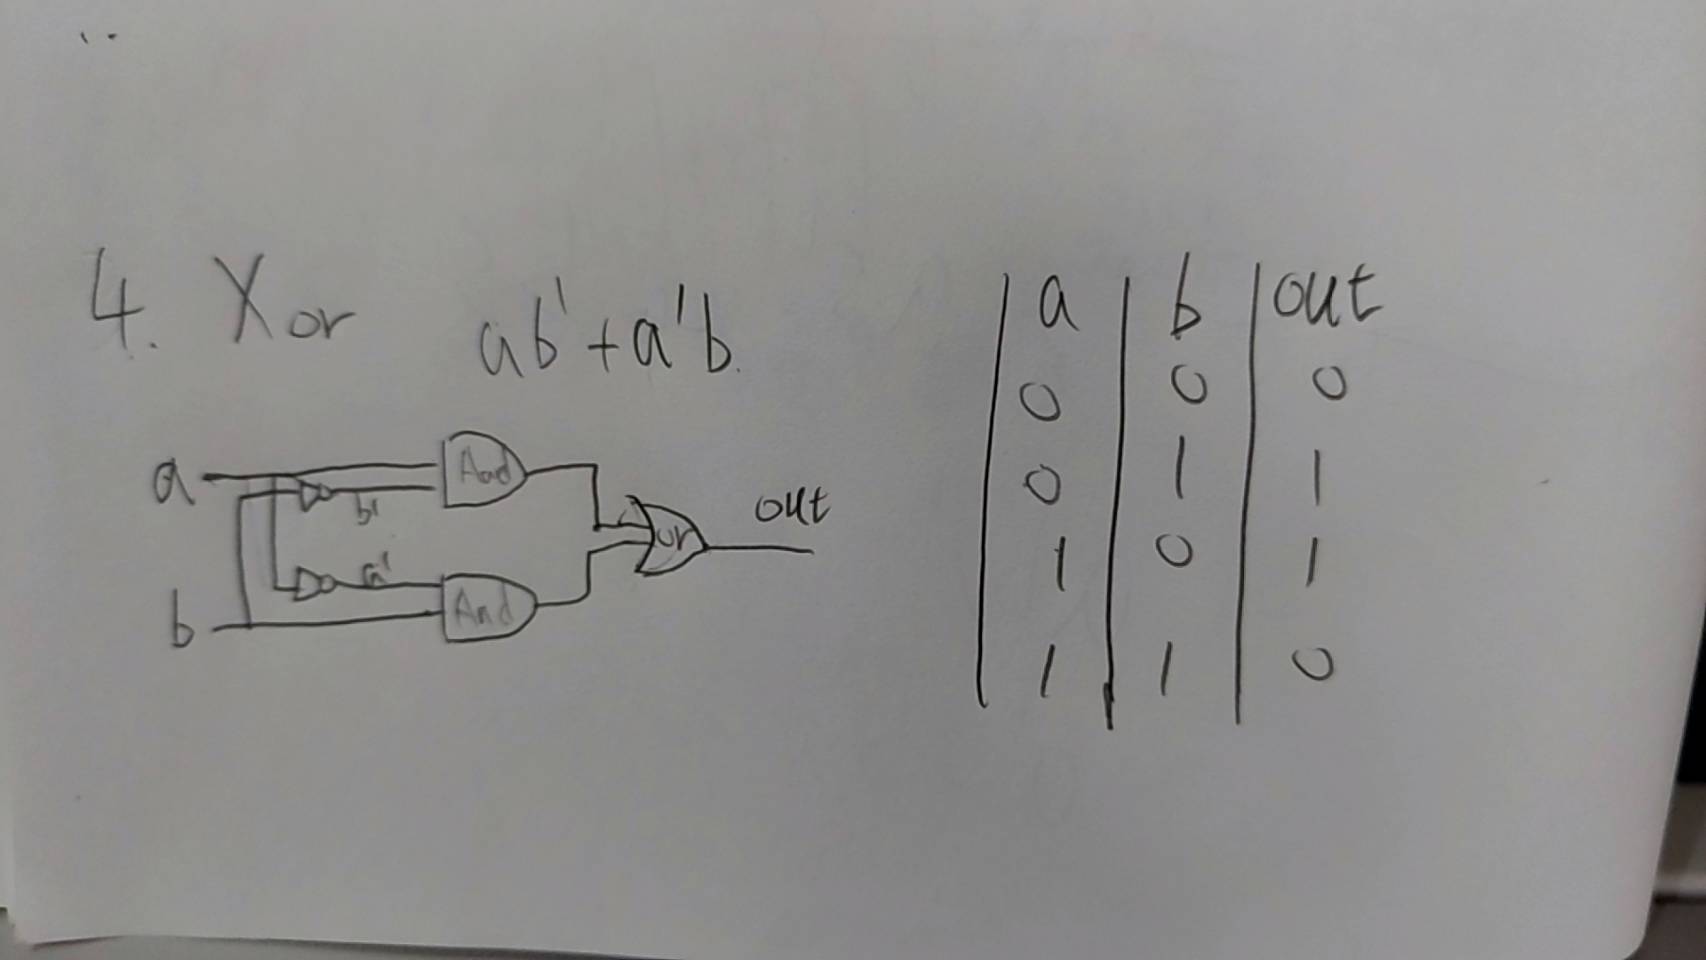 4. Xor ab'+a'b.
a
b'
a'
b
And
And
or
out
a b out
0 0 0
0 1 1
1 0 1
1 1 0